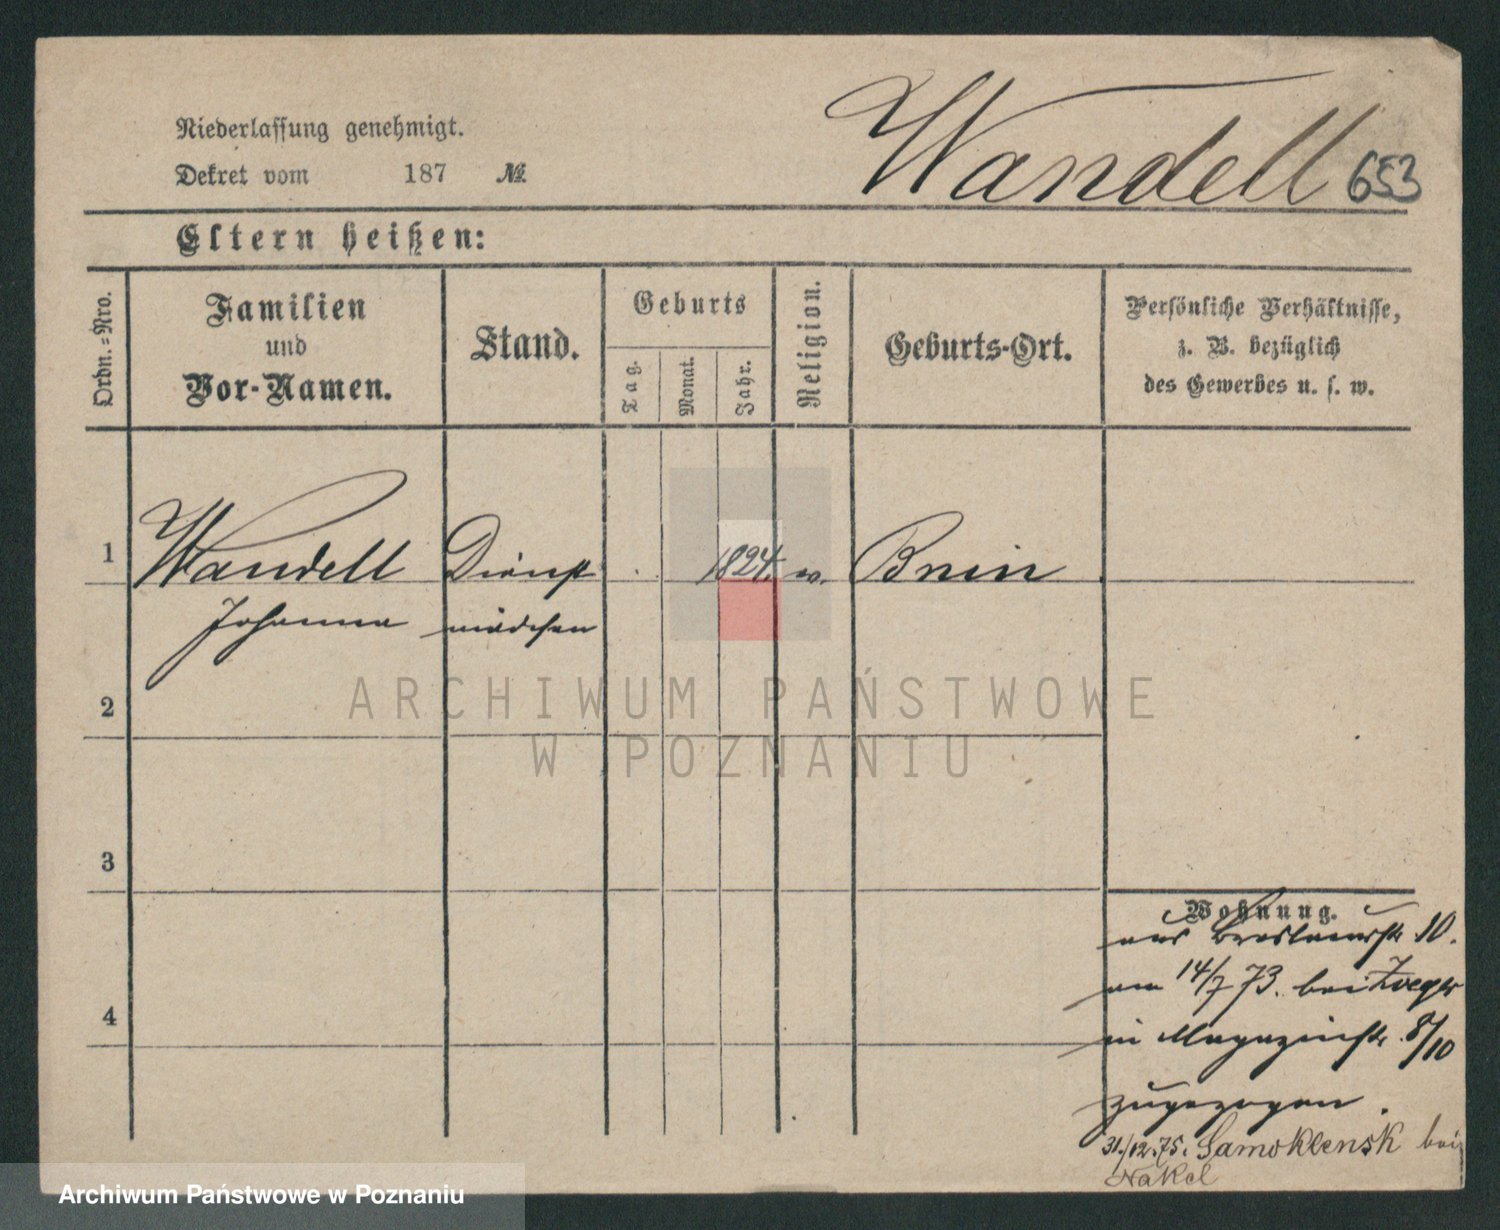 Wandell 653
Niederlassung genehmigt.
Dekret vom 187 №
Eltern heißen:
Ordn.=Nro.
Familien
und
Vor-Namen.
Stand.
Geburts
Tag.
Monat.
Jahr.
Religion.
Geburts-Ort.
Persönliche Verhältnisse,
z. B. bezüglich
des Gewerbes u. s. w.
1 Wandell Dienst 1824. w. Bnin
Johanna mädchen
2
3
4
Wohnung.
aus Breslauerstr. 10.
am 14/7 73. bei
in Magazinstr. 8/10
zugezogen.
31./12.75. Samoklensk bei
Nakel
ARCHIWUM PAŃSTWOWE
W POZNANIU
Archiwum Państwowe w Poznaniu